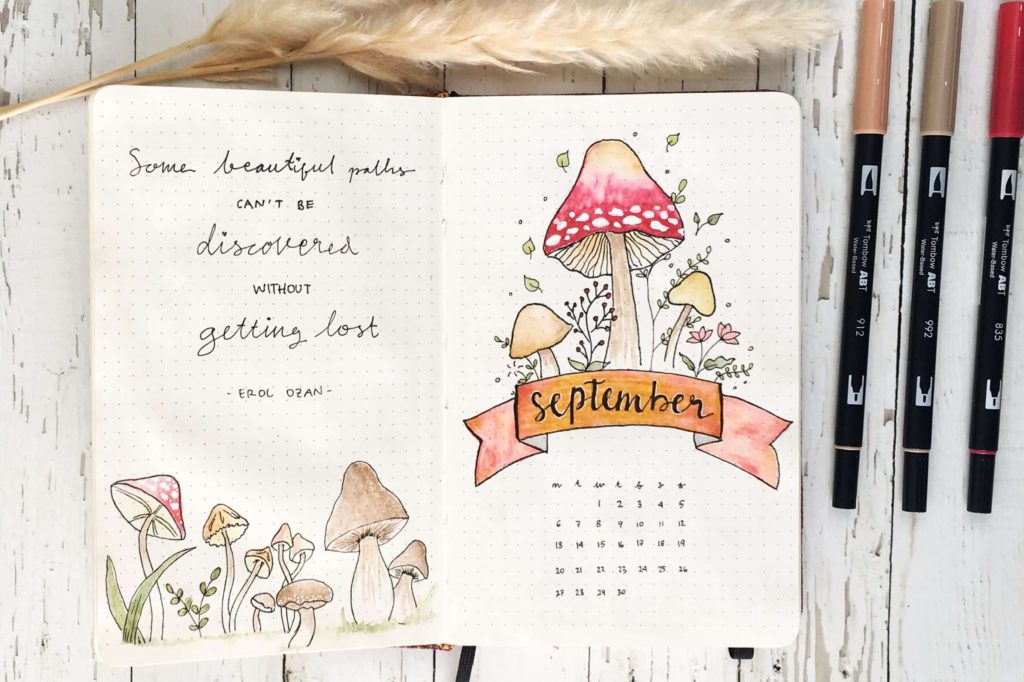 Some beautiful paths
CAN'T BE
discovered
WITHOUT
getting lost
- EROL OZAN -
september
m t w t f s s
1 2 3 4 5
6 7 8 9 10 11 12
13 14 15 16 17 18 19
20 21 22 23 24 25 26
27 28 29 30
Tombow ABT
Water-Based
912
Tombow ABT
Water-Based
992
Tombow ABT
Water-Based
835